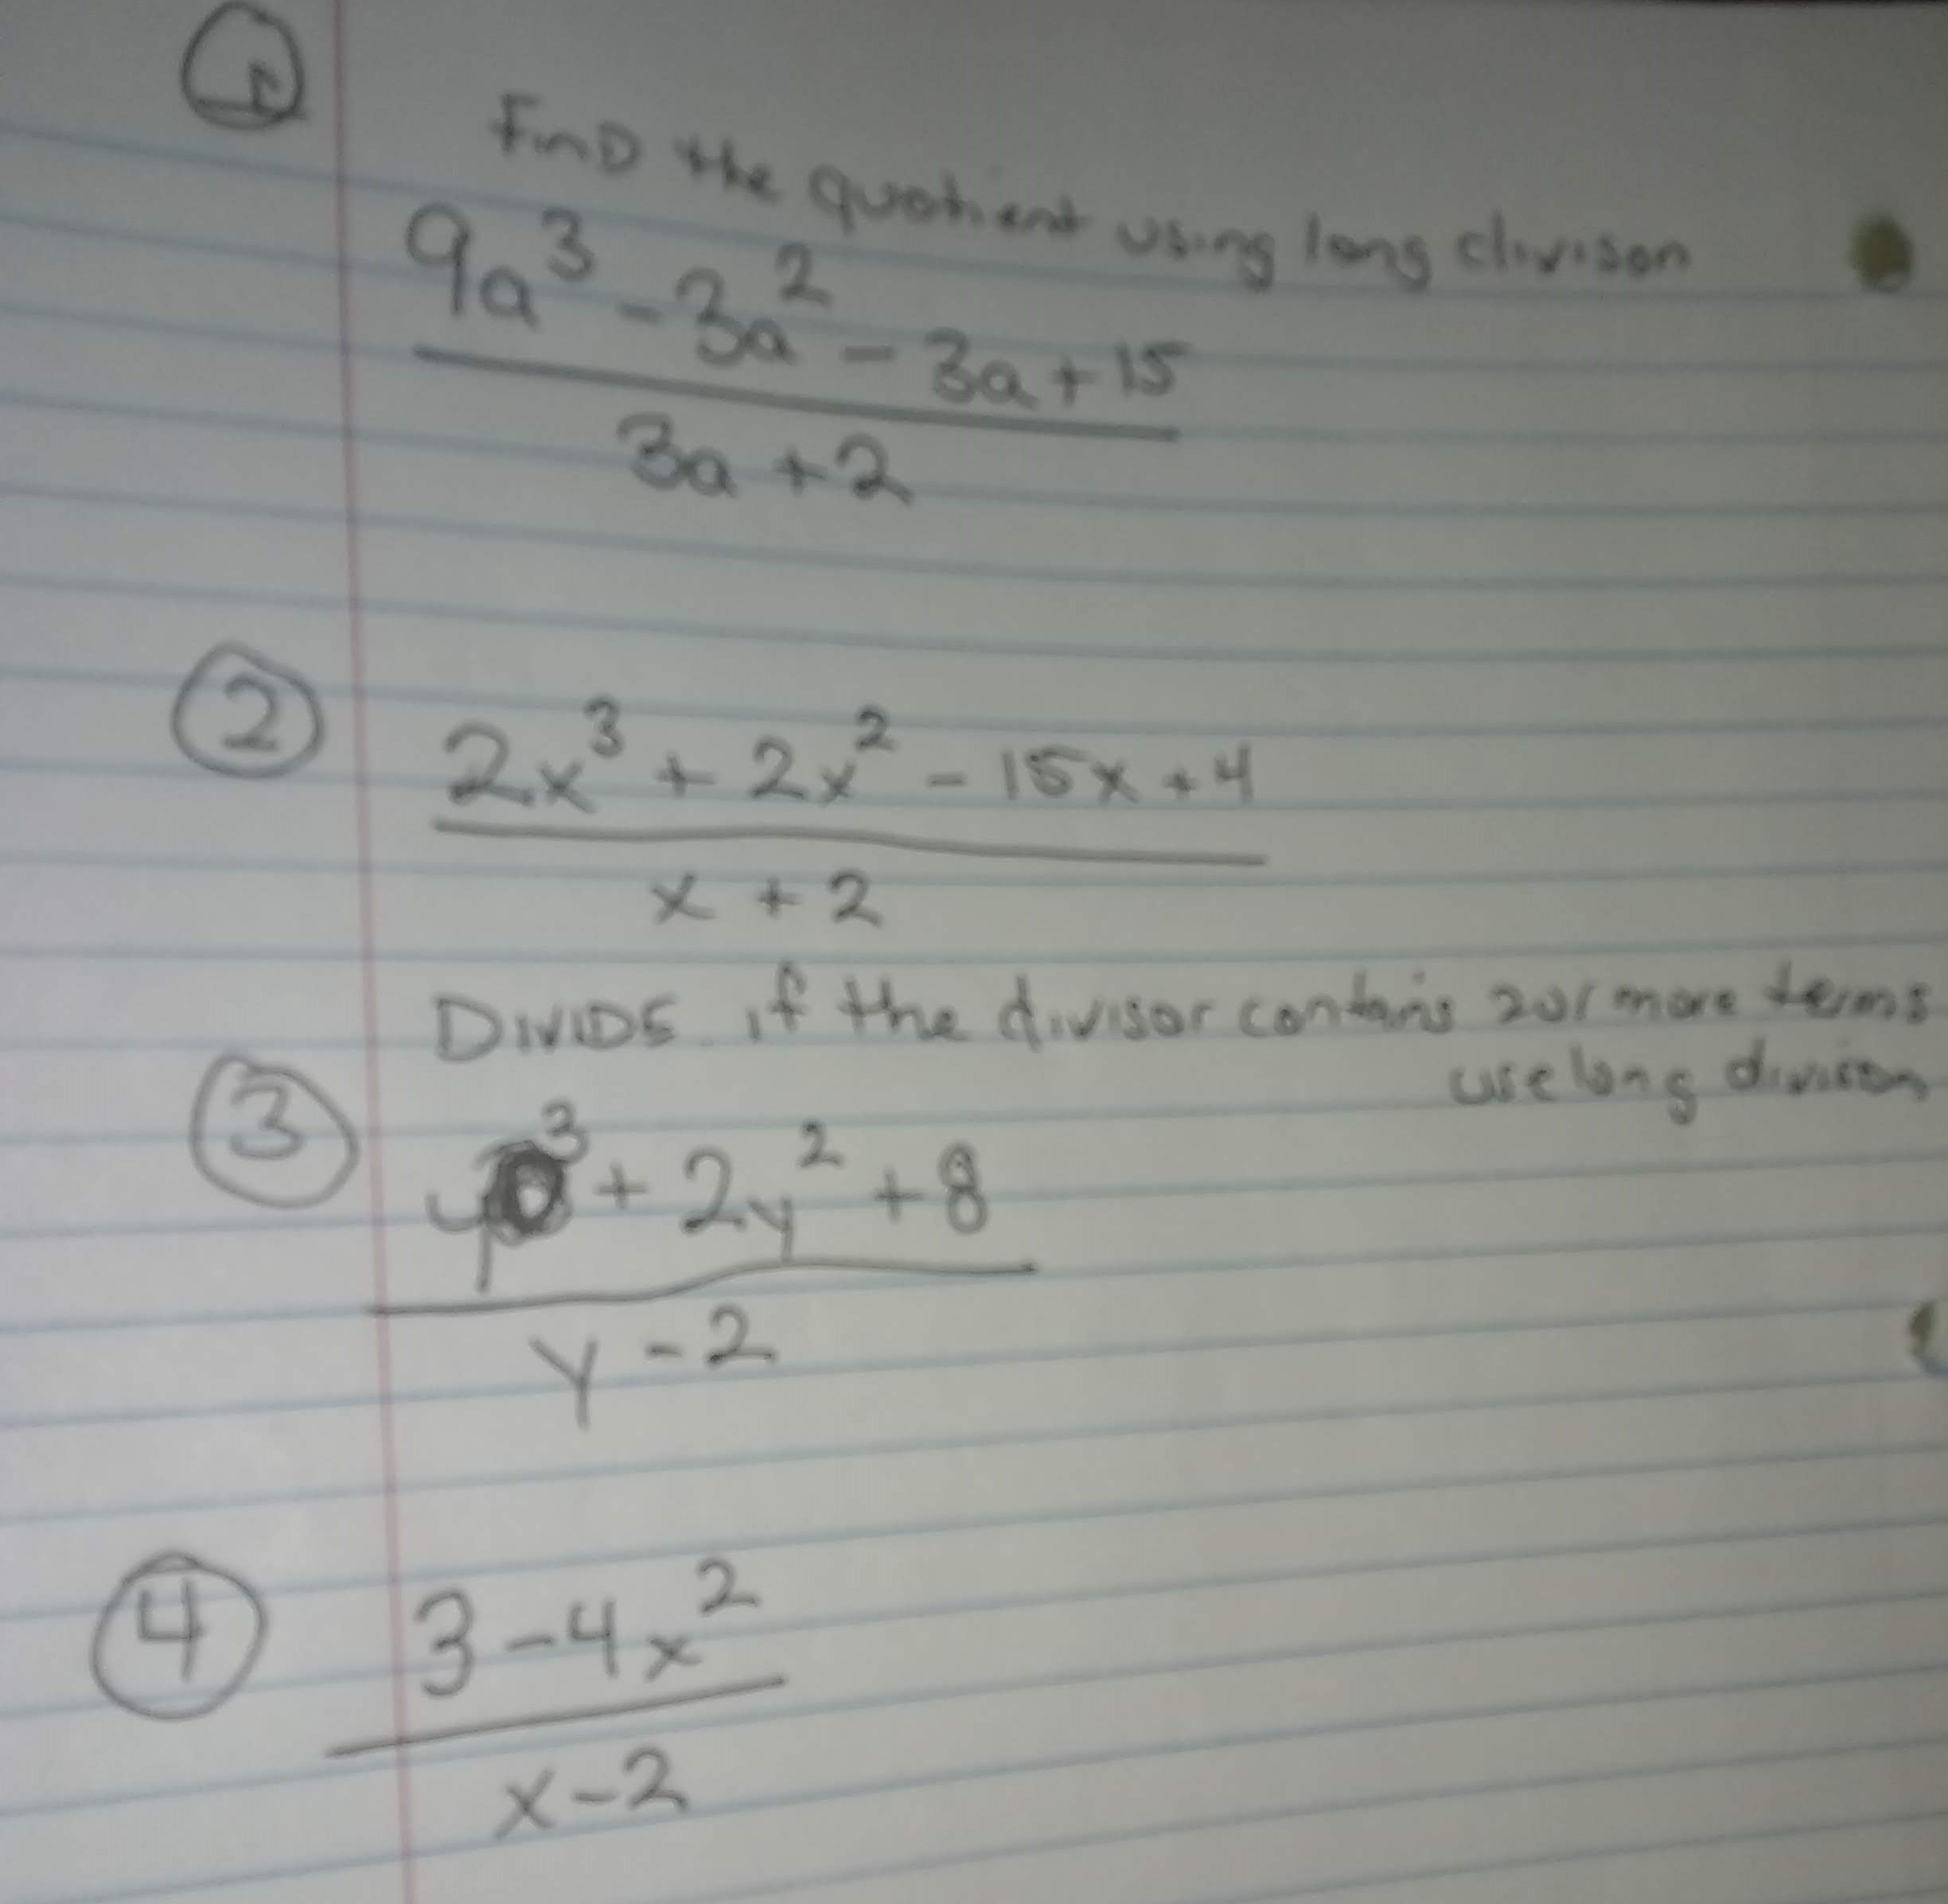 1
FinD the quotient using long divison
9a³ - 3a² - 3a + 15
3a + 2
2
2x³ + 2x² - 15x + 4
x + 2
DiviDE if the divisor contains 2 or more terms
use long divison
3
y³ + 2y² + 8
y - 2
4
3 - 4x²
x - 2